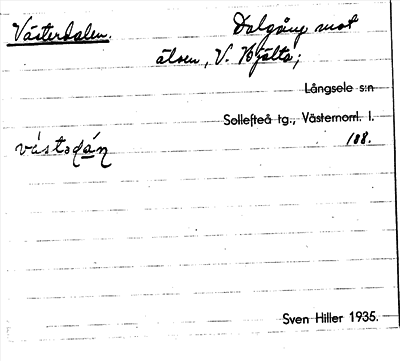 Västerdalen. Dalgång mot
älven, V. Hjälta;
Långsele s:n
Sollefteå tg., Västernorrl. l.
188.
Sven Hiller 1935.